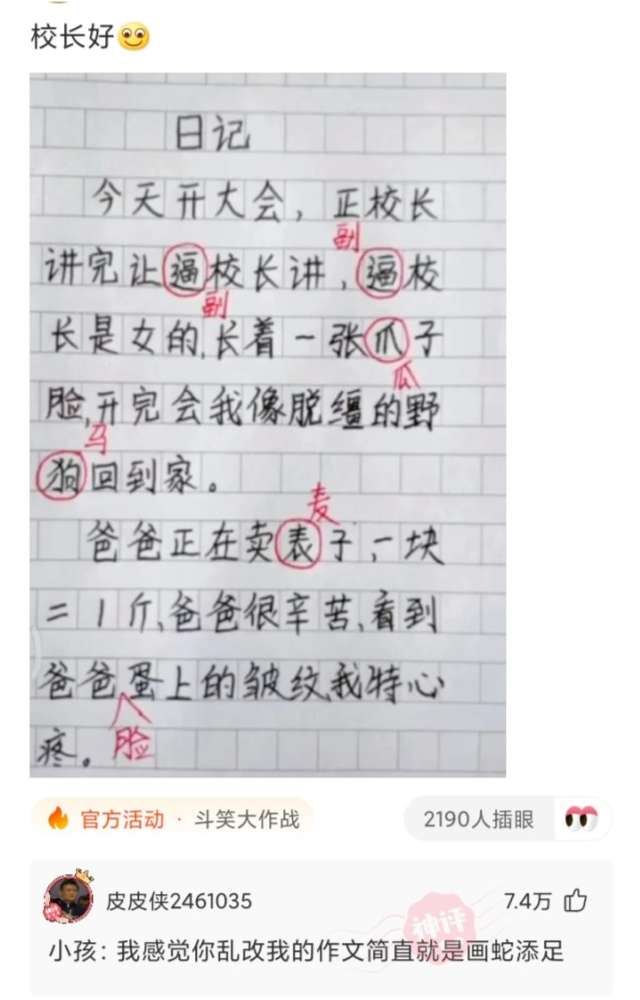 校长好
日记
今天开大会，正校长
副
讲完让逼校长讲，逼校
副
长是女的,长着一张爪子
瓜
脸,开完会我像脱缰的野
马
狗回到家。
麦
爸爸正在卖表子,一块
二1斤,爸爸很辛苦,看到
爸爸蛋上的皱纹,我特心
脸
疼。
官方活动 · 斗笑大作战
2190人插眼
皮皮侠2461035
7.4万
神评
小孩: 我感觉你乱改我的作文简直就是画蛇添足